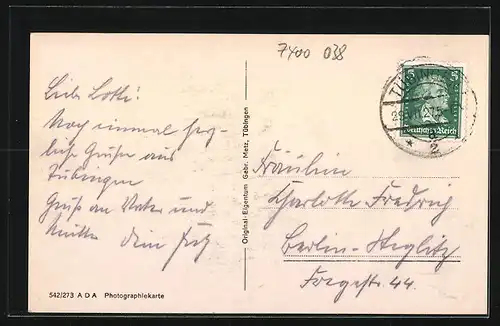 7400 038
Liebe Lotte!
Noch einmal herz-
liche Grüße aus
Tübingen
Gruß an Vater und
Mutter Dein Fritz
542/273 A D A Photographiekarte
Original-Eigentum Gebr. Metz, Tübingen
5 5
Deutsches Reich
Fräulein
Charlotte Friedrich
Berlin-Steglitz
44.